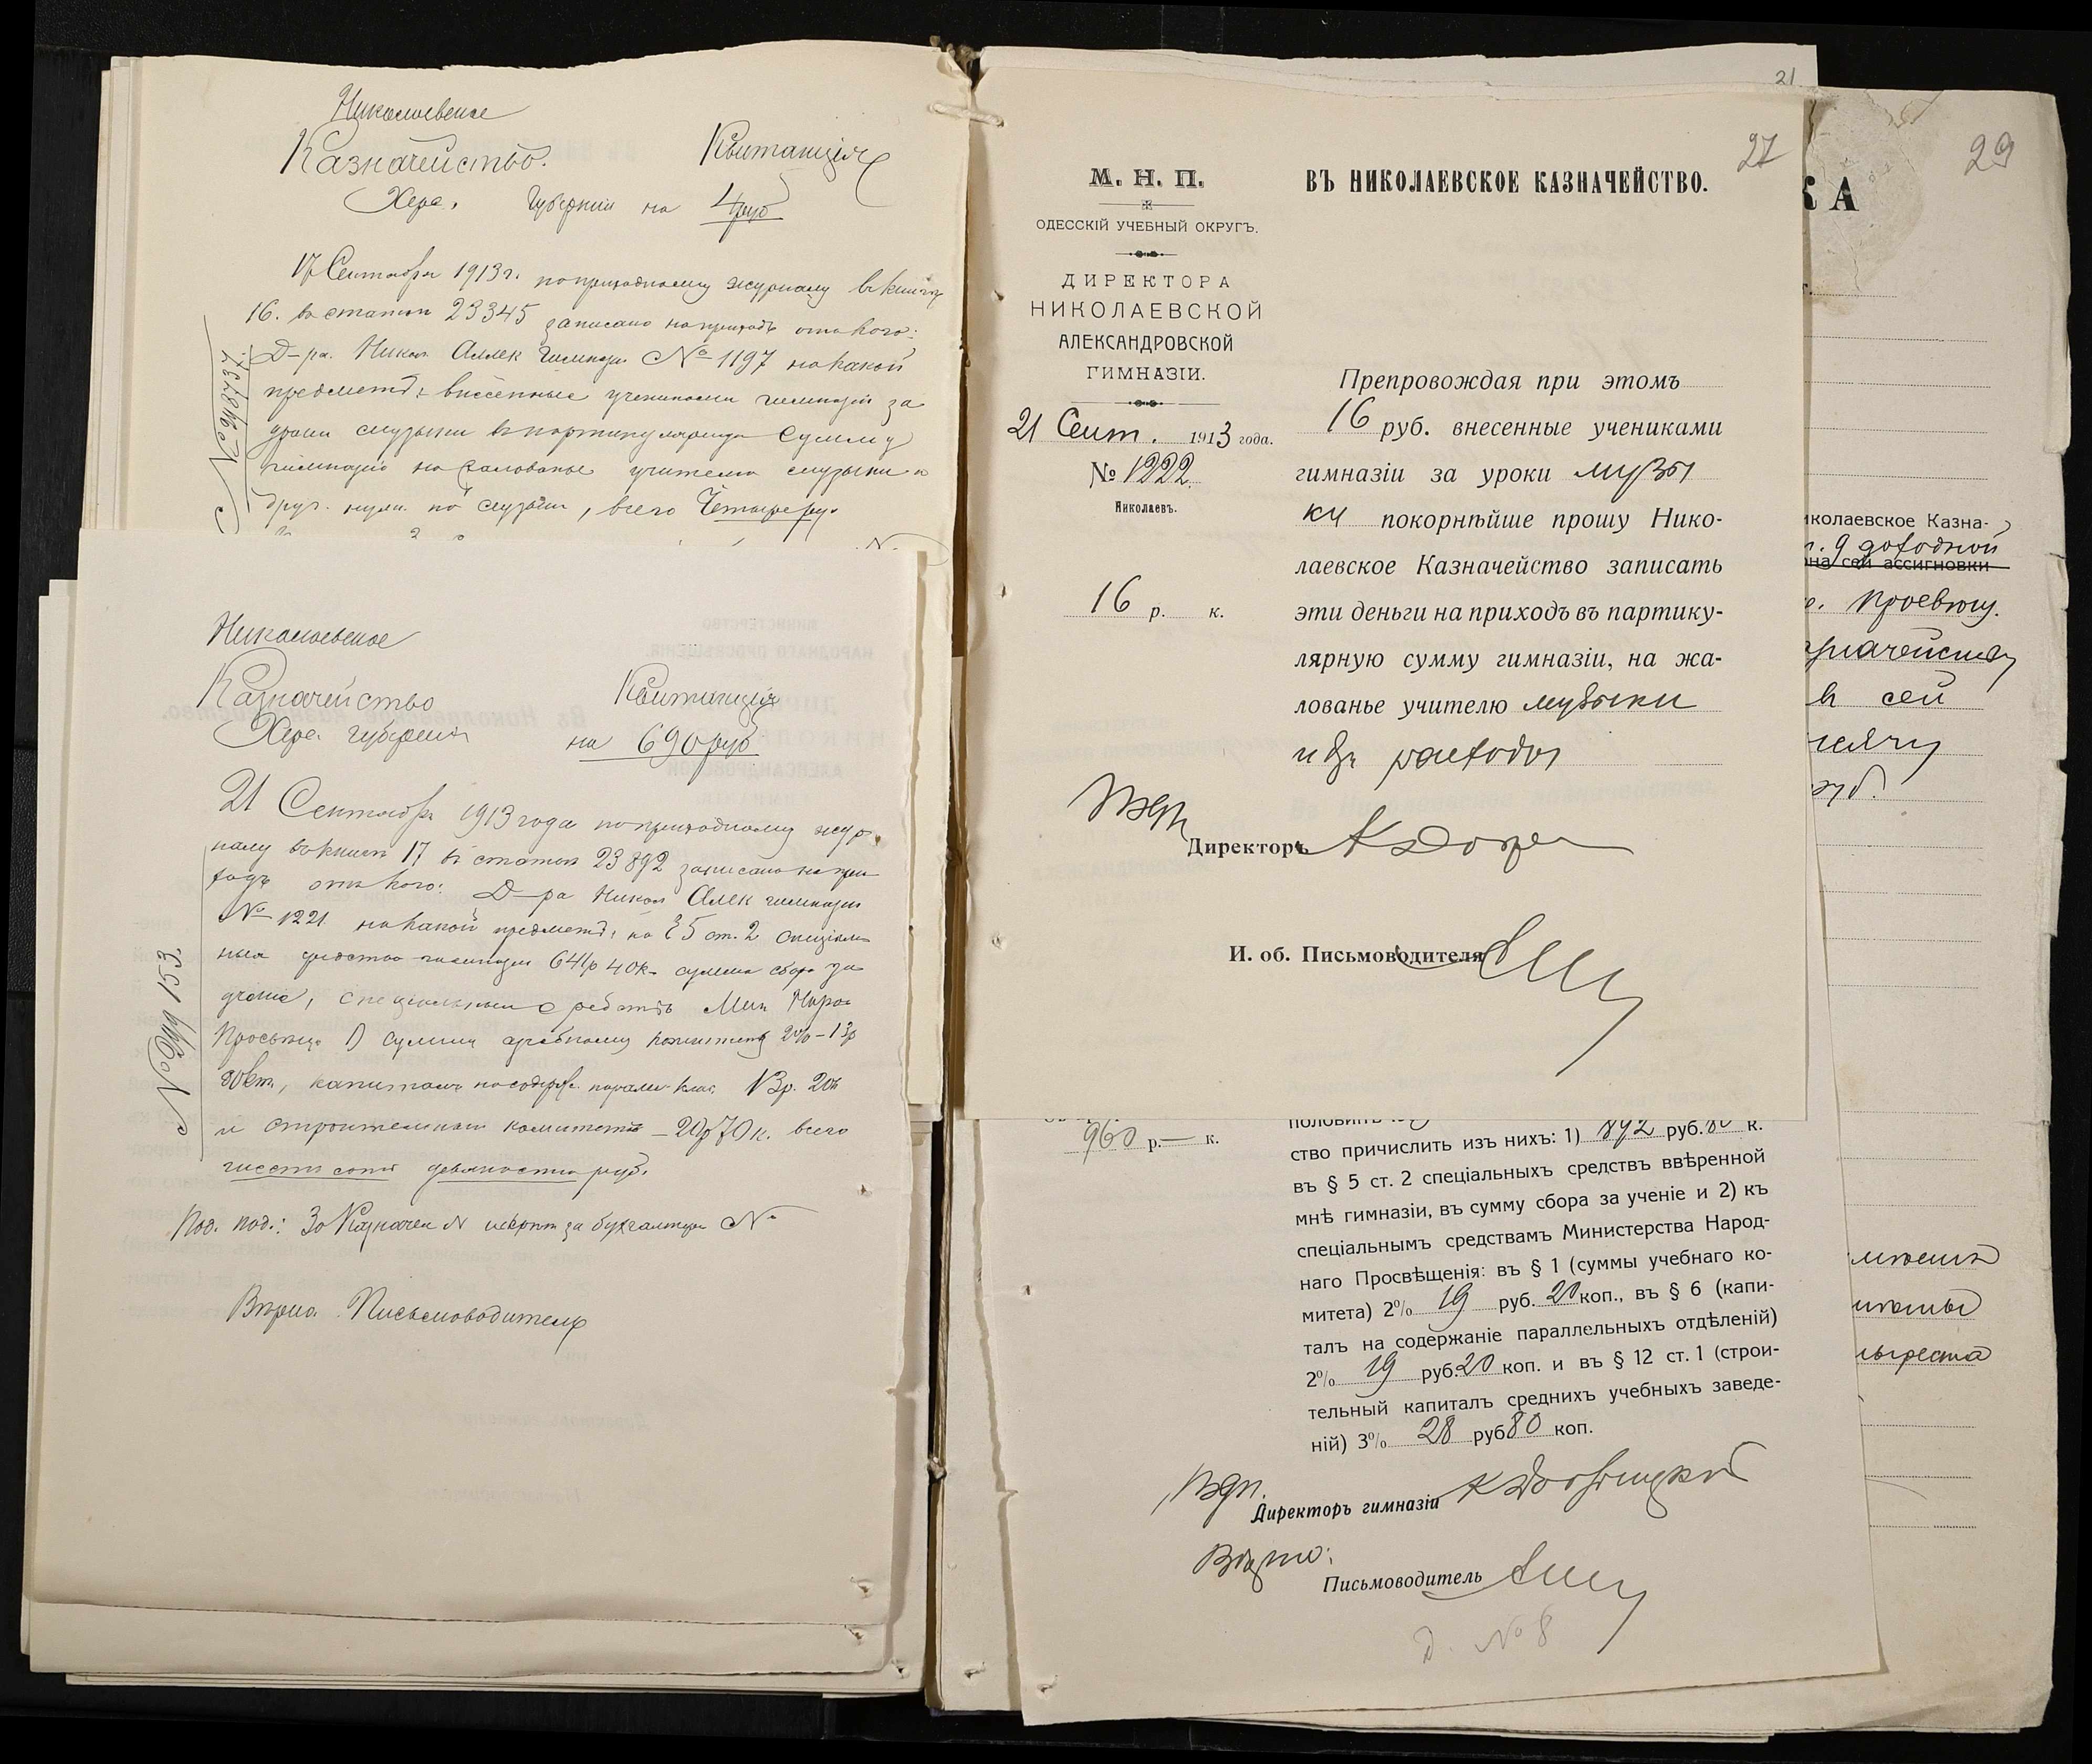 Николаевское
Казначейство. Квитанція
Херс. Губерніи на 4 руб
17 Сентября 1913 г. по приходному журналу въ книгѣ
16. въ статьи 23345 записано на приходъ отъ кого:
Д-ра. Никол. Алек Гимназіи № 1197 на какой
предметъ: внесенные учениками гимназіи за
уроки музыки въ партикулярную сумму
гимназіи на жалованье учителю музыки и
друг. нужд. по музыки, всего Четыре ру.
Николаевское
Казначейство Квитанція
Херс. губерніи на 690 руб
21 Сентября 1913 года по приходному жур
налу въ книгѣ 17 въ статьи 23892 записано на при
ходъ отъ кого: Д-ра Никол Алек гимназіи
№ 1221 на какой предметъ: на § 5 ст. 2 спеціаль
ныя средства гимназіи 641 р 40 к. сумма сбора за
ученіе, спеціальныя средства Мин Народ
Просвѣщ. 1) суммы учебному комитету 2% - 13 р
80 коп, капиталъ на содерж. паралл. клас. 13 р. 80 к
и строительный комитетъ - 20 р 70 к. всего
шестьсотъ девяносто руб.
Под. под.: За Казначея N за бухгалтера N
Вѣрно. Письмоводитель
21
27
М. Н. П. ВЪ НИКОЛАЕВСКОЕ КАЗНАЧЕЙСТВО.
ОДЕССКІЙ УЧЕБНЫЙ ОКРУГЪ.
ДИРЕКТОРА
НИКОЛАЕВСКОЙ
АЛЕКСАНДРОВСКОЙ
ГИМНАЗІИ.
21 Сент. 1913 года.
№ 1222.
Николаевъ.
16 р. к.
Препровождая при этомъ
16 руб. внесенные учениками
гимназіи за уроки музы
ки покорнѣйше прошу Нико-
лаевское Казначейство записать
эти деньги на приходъ въ партику-
лярную сумму гимназіи, на жа-
лованье учителю музыки
и др расходы
Директоръ
И. об. Письмоводителя
960 р. — к.
ство причислить изъ нихъ: 1) 892 руб. 80 к.
въ § 5 ст. 2 спеціальныхъ средствъ ввѣренной
мнѣ гимназіи, въ сумму сбора за ученіе и 2) къ
спеціальнымъ средствамъ Министерства Народ-
наго Просвѣщенія: въ § 1 (суммы учебнаго ко-
митета) 2% 19 руб. 20 коп., въ § 6 (капи-
талъ на содержаніе параллельныхъ отдѣленій)
2% 19 руб. 20 коп. и въ § 12 ст. 1 (строи-
тельный капиталъ среднихъ учебныхъ заведе-
ній) 3% 28 руб 80 коп.
Директоръ гимназіи
Письмоводитель
Д. № 8
29
КА
иколаевское Казна-
9 доходной
на сей ассигновки
въ сей
руб.